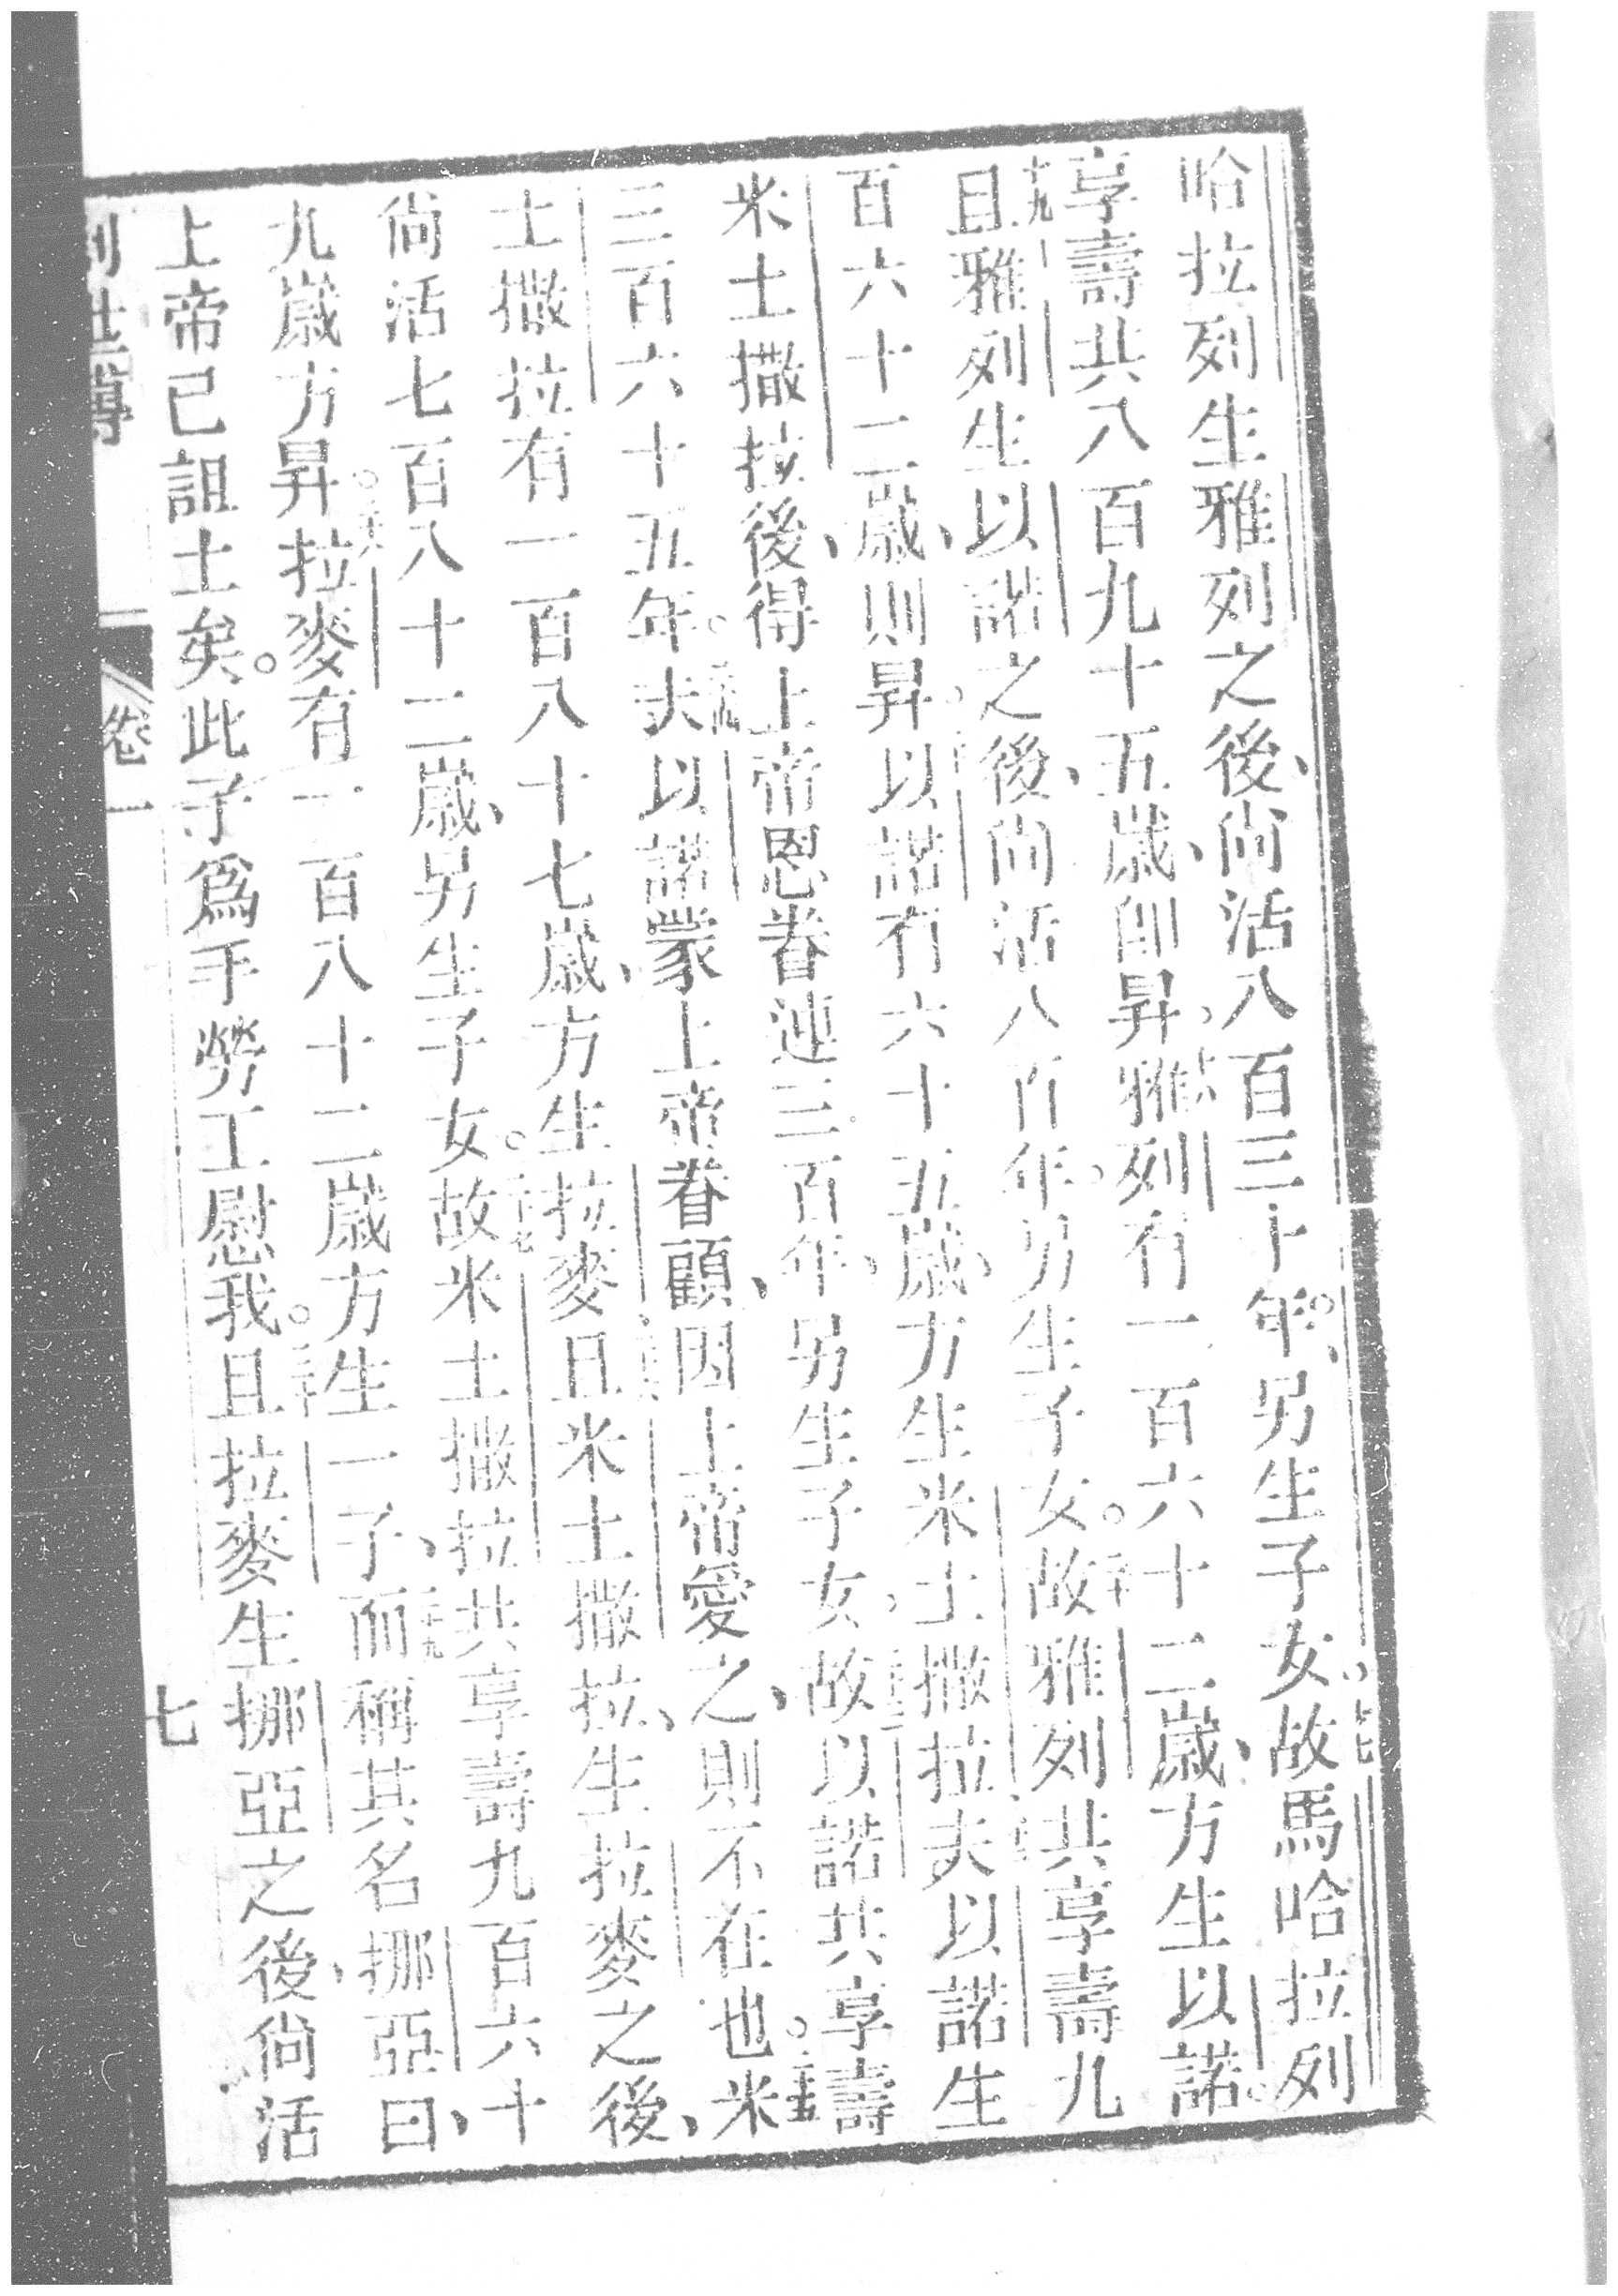 哈拉列生雅列之後、尚活八百三十年、另生子女。十七故馬哈拉列
享壽共八百九十五歲、卽昇。十八雅列有一百六十二歲、方生以諾。
十九且雅列生以諾之後、尚活八百年。另生子女。二十故雅列共享壽九
百六十二歲、則昇。以諾有六十五歲、方生米土撒拉夫以諾生
米土撒拉後、得上帝恩眷連三百年、另生子女。故以諾共享壽
三百六十五年。夫以諾蒙上帝眷顧、因上帝愛之、則不在也。米
土撒拉有一百八十七歲、方生拉麥且米土撒拉、生拉麥之後、
尚活七百八十二歲、另生子女。二十七故米土撒拉共享壽九百六十
九歲方昇。拉麥有一百八十二歲方生一子、二十九而稱其名挪亞曰、
上帝已詛土矣。此子爲手勞工慰我。三十且拉麥生挪亞之後、尚活
創世傳 卷一 七